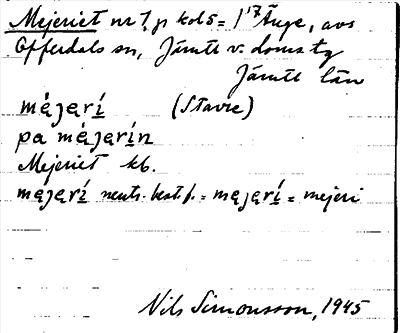 Mejeriet nr 1, p kol 5 = 1 17 Änge, avs
Offerdals sn, Jämtl v. doms tg
Jämtl län
mejerí (Stavre)
pa mejerín
Mejeriet kb.
mejerí neutr. best. f. = mejerí = mejeri
Nils Simonsson, 1945